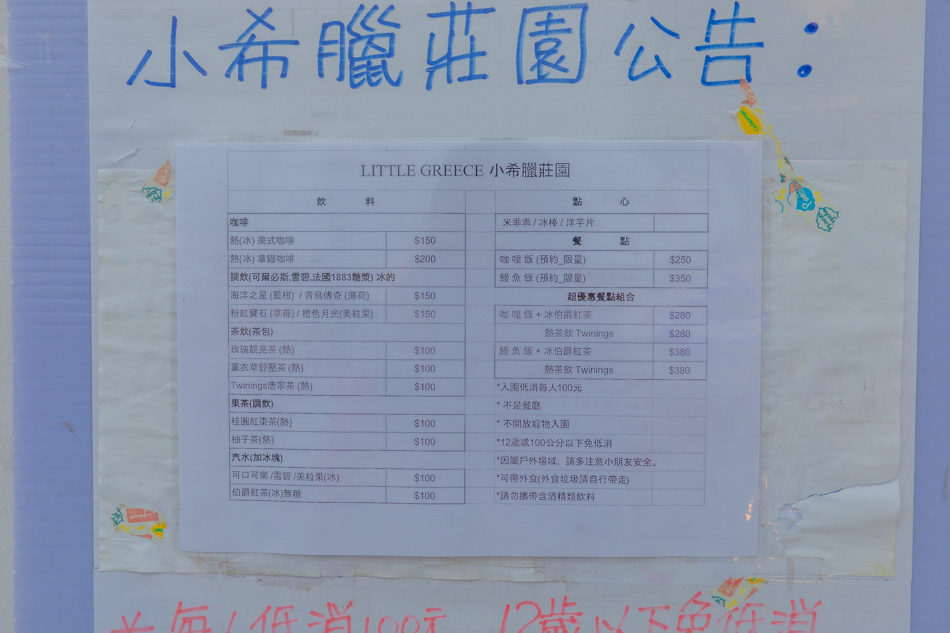 小希臘莊園公告：
LITTLE GREECE 小希臘莊園
飲 料
咖啡
熱(冰) 美式咖啡 $150
熱(冰) 拿鐵咖啡 $200
調飲(可爾必斯,雪碧,法國1883糖漿) 冰的
海洋之星 (藍柑) / 青鳥傳奇 (薄荷) $150
粉紅寶石 (草莓) / 橙色月光(美粒果) $150
茶飲(茶包)
玫瑰靚亮茶 (熱) $100
薰衣草舒壓茶 (熱) $100
Twinings唐寧茶 (熱) $100
果茶(調飲)
桂圓紅棗茶(熱) $100
柚子茶(熱) $100
汽水(加冰塊)
可口可樂 /雪碧 /美粒果(冰) $100
伯爵紅茶(冰)無糖 $100
點 心
米乖乖 / 冰棒 / 洋芋片
餐 點
咖 哩 飯 (預約_限量) $250
鰻 魚 飯 (預約_限量) $350
超優惠餐點組合
咖 哩 飯 + 冰伯爵紅茶 $280
熱茶飲 Twinings $280
鰻 魚 飯 + 冰伯爵紅茶 $380
熱茶飲 Twinings $380
*入園低消每人100元
* 不是餐廳
* 不開放寵物入園
*12歲或100公分以下免低消
*因屬戶外場域，請多注意小朋友安全。
*可帶外食(外食垃圾請自行帶走)
*請勿攜帶含酒精類飲料
每人低消100元 12歲以下免低消